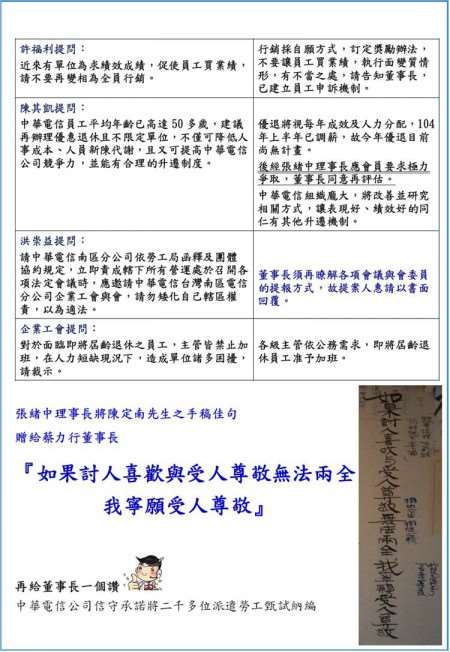 許福利提問：
近來有單位為求績效成績，促使員工買業績，
請不要再變相為全員行銷。
行銷採自願方式，訂定獎勵辦法，
不要讓員工買業績，執行面變質情
形，有不當之處，請告知董事長，
已建立員工申訴機制。
陳其凱提問：
中華電信員工平均年齡已高達 50 多歲，建議
再辦理優惠退休且不限定單位，不僅可降低人
事成本、人員新陳代謝，且又可提高中華電信
公司競爭力，並能有合理的升遷制度。
優退將視每年成效及人力分配，104
年上半年已調薪，故今年優退目前
尚無計畫。
後經張緒中理事長應會員要求極力
爭取，董事長同意再評估。
中華電信組織龐大，將改善並研究
相關方式，讓表現好、績效好的同
仁有其他升遷機制。
洪崇益提問：
請中華電信南區分公司依勞工局函釋及團體
協約規定，立即責成轄下所有營運處於召開各
項法定會議時，應邀請中華電信台灣南區電信
分公司企業工會與會，請勿矮化自己轄區權
責，以為適法。
董事長須再瞭解各項會議與會委員
的提報方式，故提案人惠請以書面
回覆。
企業工會提問：
對於面臨即將屆齡退休之員工，主管皆禁止加
班，在人力短缺現況下，造成單位諸多困擾，
請裁示。
各級主管依公務需求，即將屆齡退
休員工准予加班。
張緒中理事長將陳定南先生之手稿佳句
贈給蔡力行董事長
『如果討人喜歡與受人尊敬無法兩全
我寧願受人尊敬』
再給董事長一個讚
中華電信公司信守承諾將二千多位派遣勞工甄試納編
如果討人喜歡與受人尊敬無法兩全 我寧願受人尊敬